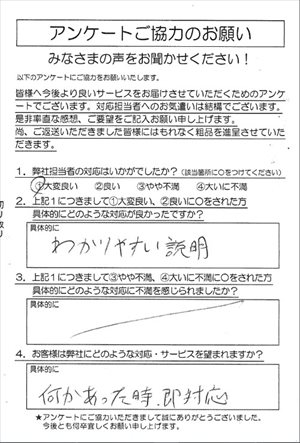 アンケートご協力のお願い
みなさまの声をお聞かせください！
以下のアンケートにご協力をお願いいたします。
皆様へ今後より良いサービスをお届けさせていただくためのアンケ
ートでございます。対応担当者へのお気遣いは結構でございます。
是非率直な感想、ご要望をご記入お願い申し上げます。
尚、ご返送いただきました皆様にはもれなく粗品を進呈させていた
だきます。
1．弊社担当者の対応はいかがでしたか？（該当箇所に○をつけてください）
①大変良い ②良い ③やや不満 ④大いに不満
2．上記1につきまして①大変良い、②良いに○をされた方
具体的にどのような対応が良かったですか？
具体的に
わかりやすい説明
3．上記1につきまして③やや不満、④大いに不満に○をされた方
具体的にどのような対応に不満を感じられましたか？
具体的に
4．お客様は弊社にどのような対応・サービスを望まれますか？
具体的に
何かあった時、即対応
★アンケートにご協力いただきまして誠にありがとうございました。
今後とも何卒宜しくお願い申し上げます。